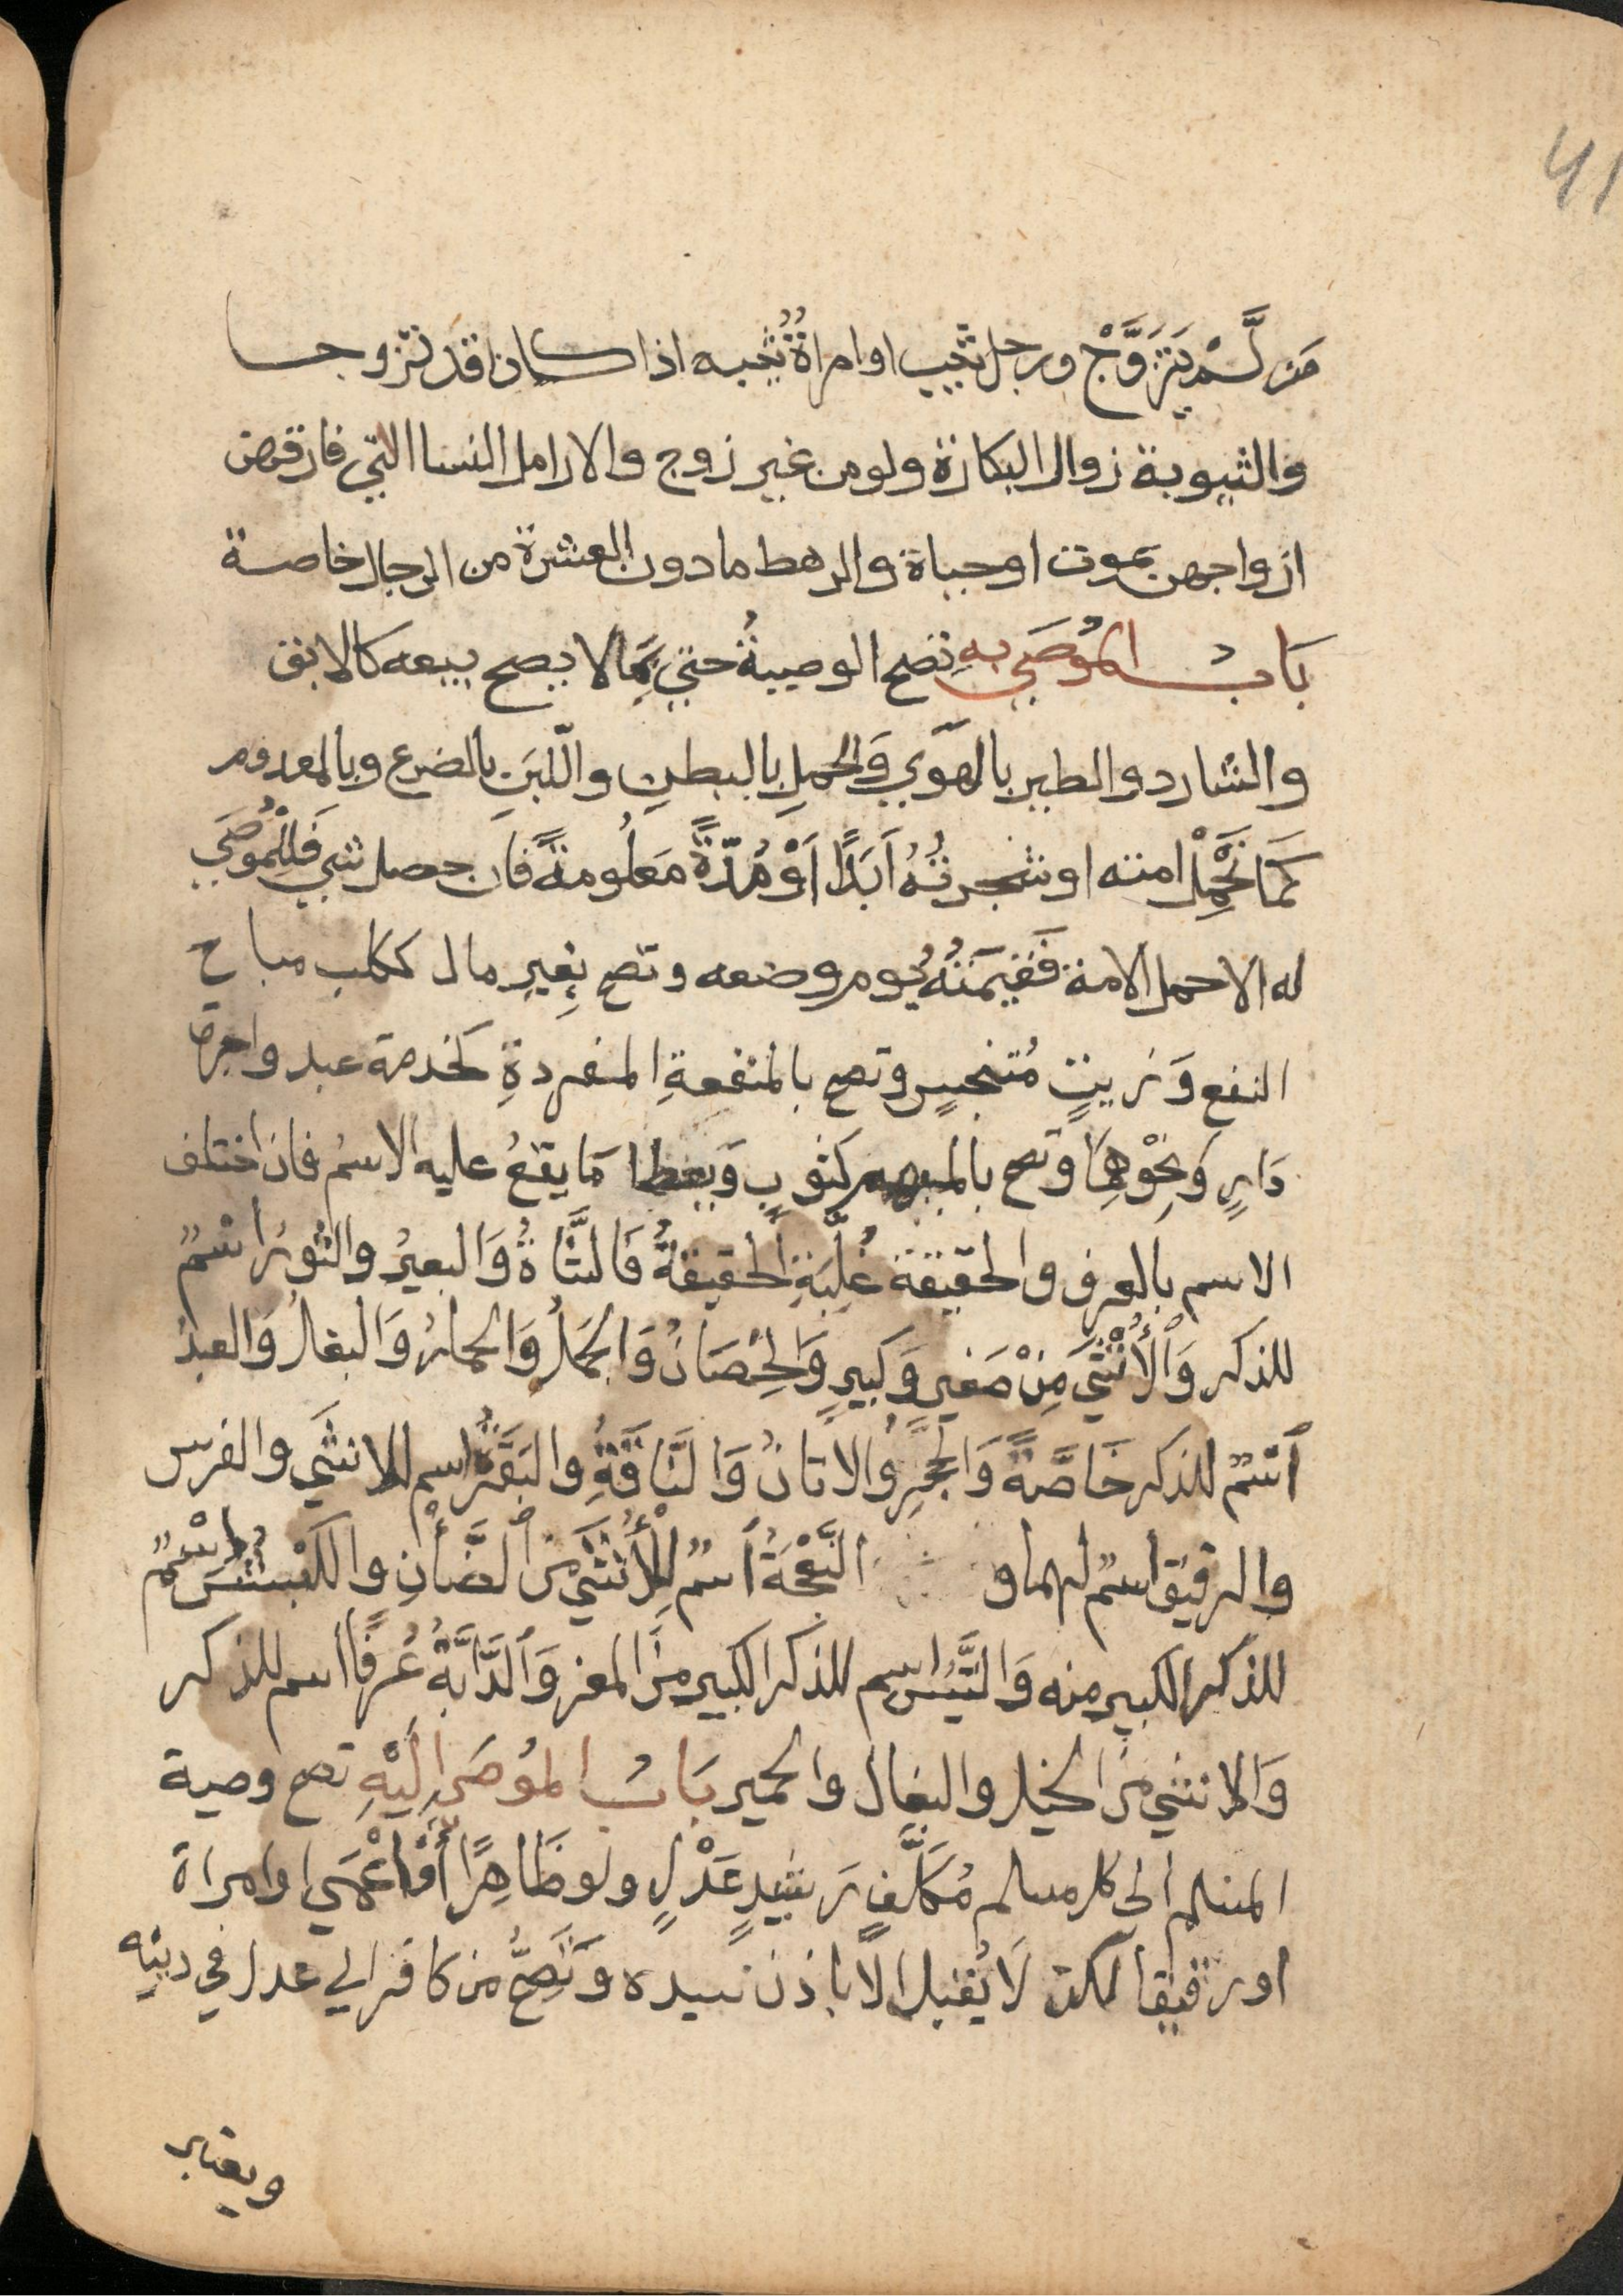 41
مَن لَّمْ يَتَزَوَّجْ ورجل ثيب او امراةٌ ثيبه اذا كانا قد تزوجا
والثيوبة زوال البكارة ولو من غير زوج والارامل النسا التي فارقهن
ازواجهن بموت او حياة والرهط ما دون العشرة من الرجال خاصة
بَابُ المُوصَي بِهِ تصح الوصيةُ حتي بمَا لا يصح بيعه كالابق
والشارد والطير بالهَوَي وَالحملِ بالبطنِ واللّبَنِ بالضرع وبالمعدوم
كَمَا تَحْمِلُ امته او شجرتُهُ اَبَدًا اَوْ مُدّةً مَعلُومةً فان حصل شي فَلِلْمُوصَي
له الا حمل الامة فَقيمَتُهُ يوم وضعه وتصح بِغيرِ مال ككلب مباح
النفع وَزيتٍ مُتنجسٍ وتصح بالمنفعةِ المفردةِ كخدمة عبد واجرة
دَارٍ وَنحْوِهِمَا وتصح بالمبهم كثوبٍ وَيعطا مَا يقعُ عليه الاسمُ فان اختلف
الاسم بالعرف والحقيقة غُلِّبَةِ الحقيقةُ فَالشَّاةُ وَالبعيرُ والثورُ اسمٌ
للذكر وَالْأُنْثَي مِنْ صَغيرٍ وَكبيرٍ وَالْحِصَانُ وَالجَمَلُ وَالحمارُ وَالبغالُ وَالعبدُ
اسْمٌ للذكر خَاصَّةً وَالحِجْرُ والاتانُ وَالنَّاقَةُ والبَقَرَةُ اسم للانثَي والفرس
والرقيق اسم لهما و النَّعْجَةُ اسمٌ لِلْأُنْثَي مِنَ الضَّأْنِ والكَبْشُ اسْمٌ
للذكر الكبير منه وَالتَّيْسُ اسم للذكر الكبير مِنَ المعز وَالدَّابَّةُ عُرفًا اسم للذكر
وَالانثي مِنَ الخيل والبغال والحمير بَابُ المُوصَي اِلَيْهِ تصح وصية
المسلم الى كل مسلم مُكَلَّفٍ رَشيدٍ عَدْلٍ ولو ظَاهِرًا أَوْ اعْمَي او امراة
او رقيقا لكن لَا يُقبل الا باذن سيده وَتَصِحُّ من كافر الي عدل في دينه
ويعتبر